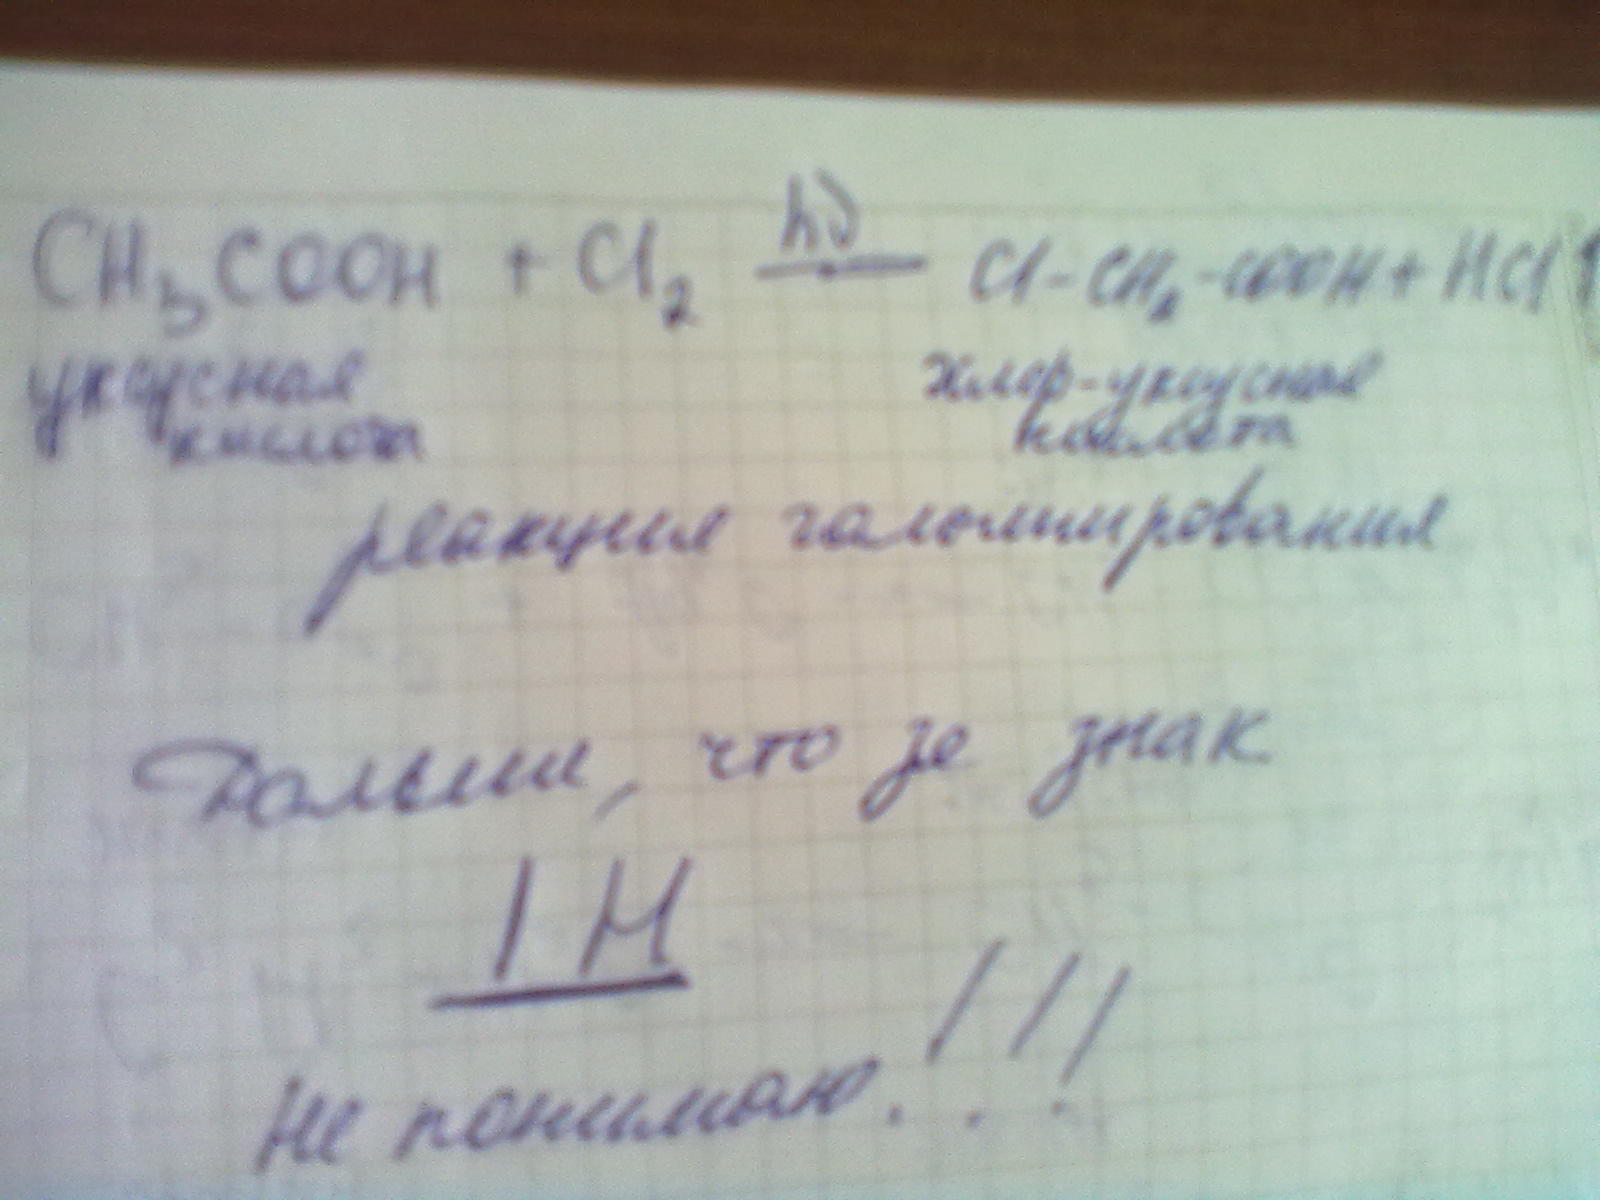 CH₃COOH + Cl₂ hν → Cl-CH₂-COOH + HCl↑
уксусная хлор-уксусная
кислота кислота
реакция галогенирования
Дальше, что за знак
1 М
Не понимаю!!!